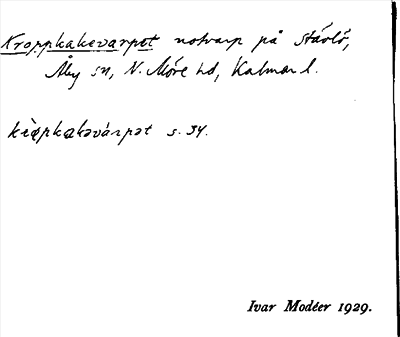 Kroppkakevarpet notvarp på Stävlö,
Åby sn, N. Möre hd, Kalmar l.
kròpkakavárpat s. 34.
Ivar Modéer 1929.